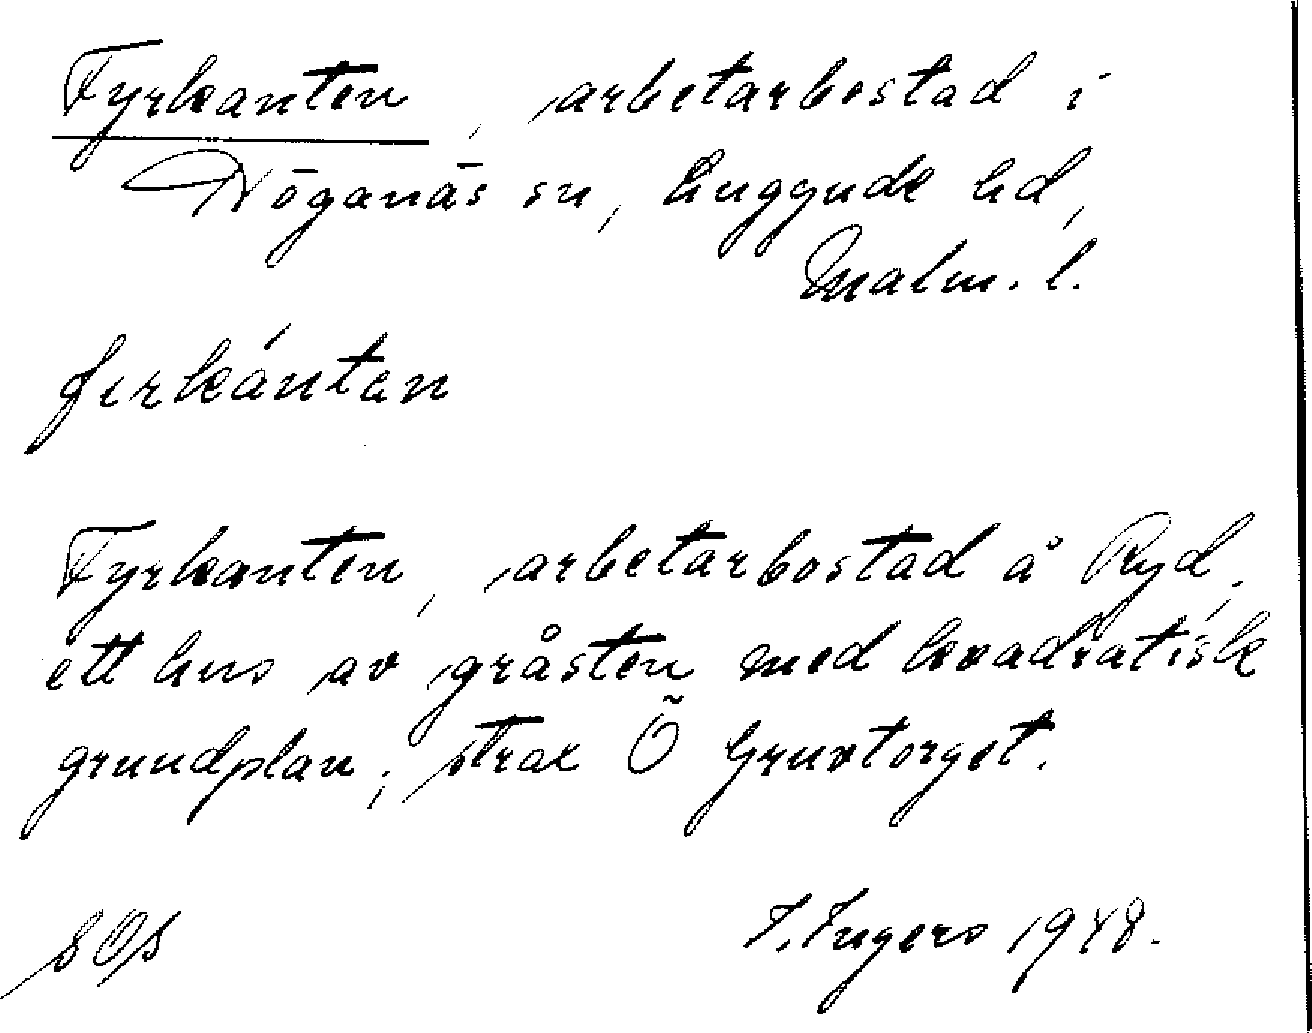 Fyrkanten, arbetarbostad i
Höganäs sn, Luggude hd,
Malm. l.
firkántan
Fyrkanten, arbetarbostad å Ryd,
ett hus av gråsten med kvadratisk
grundplan, strax Ö Gruvtorget.
SOS
I. Ingers 1948.